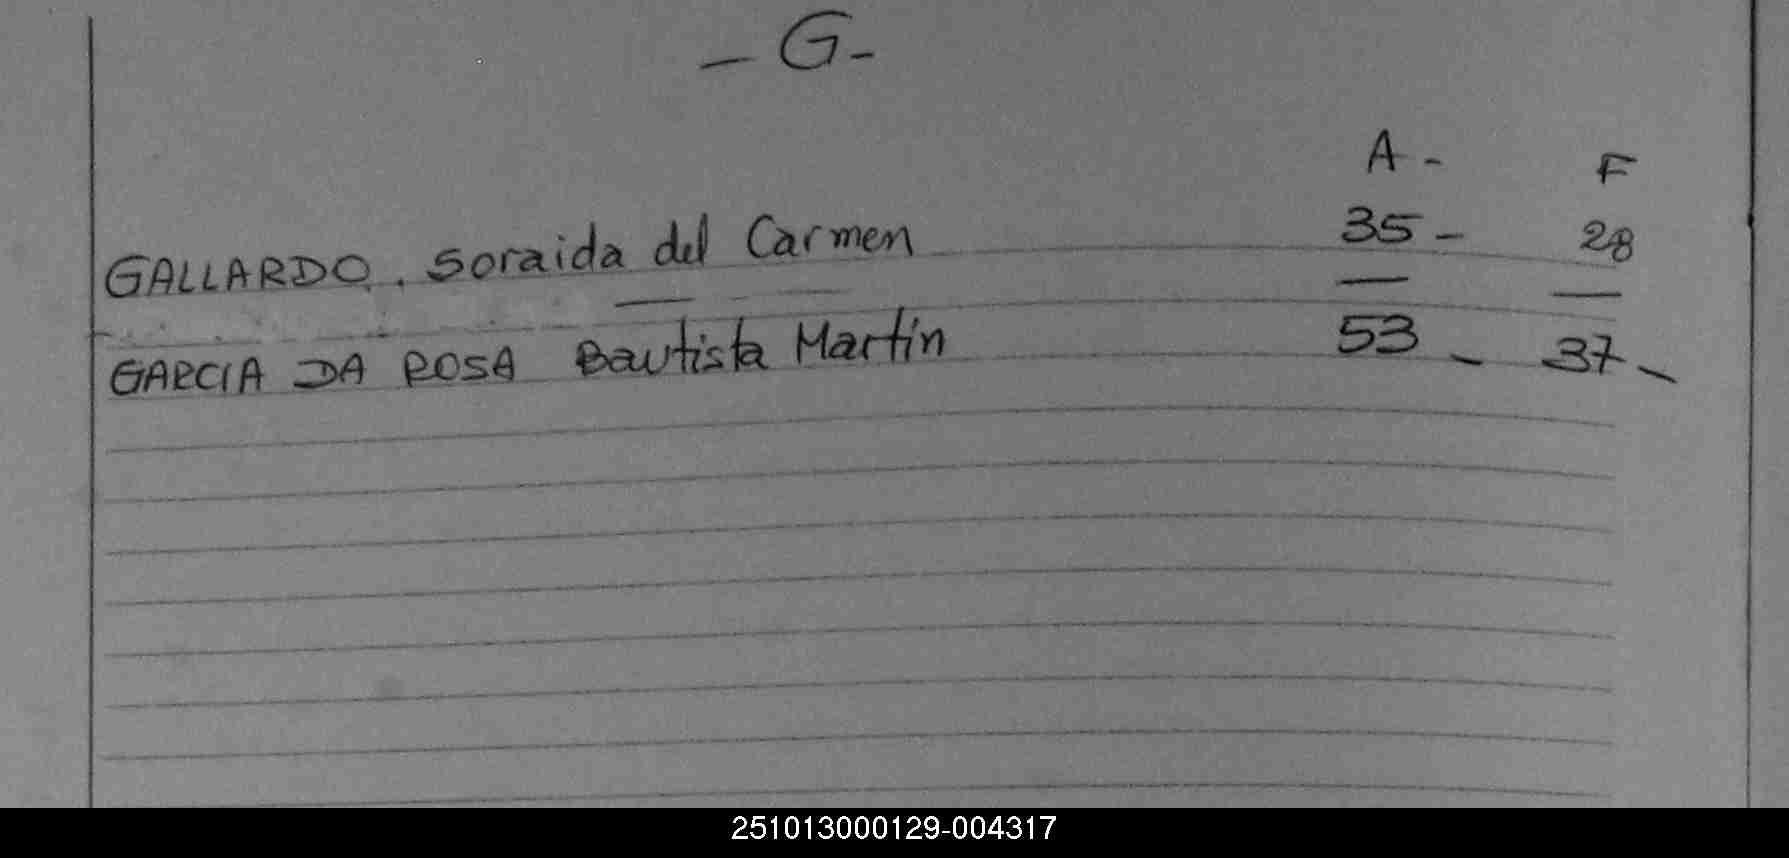 - G -
A - F
GALLARDO, Soraida del Carmen 35 - 28
GARCIA DA ROSA Bautista Martín 53 - 37 -
251013000129-004317